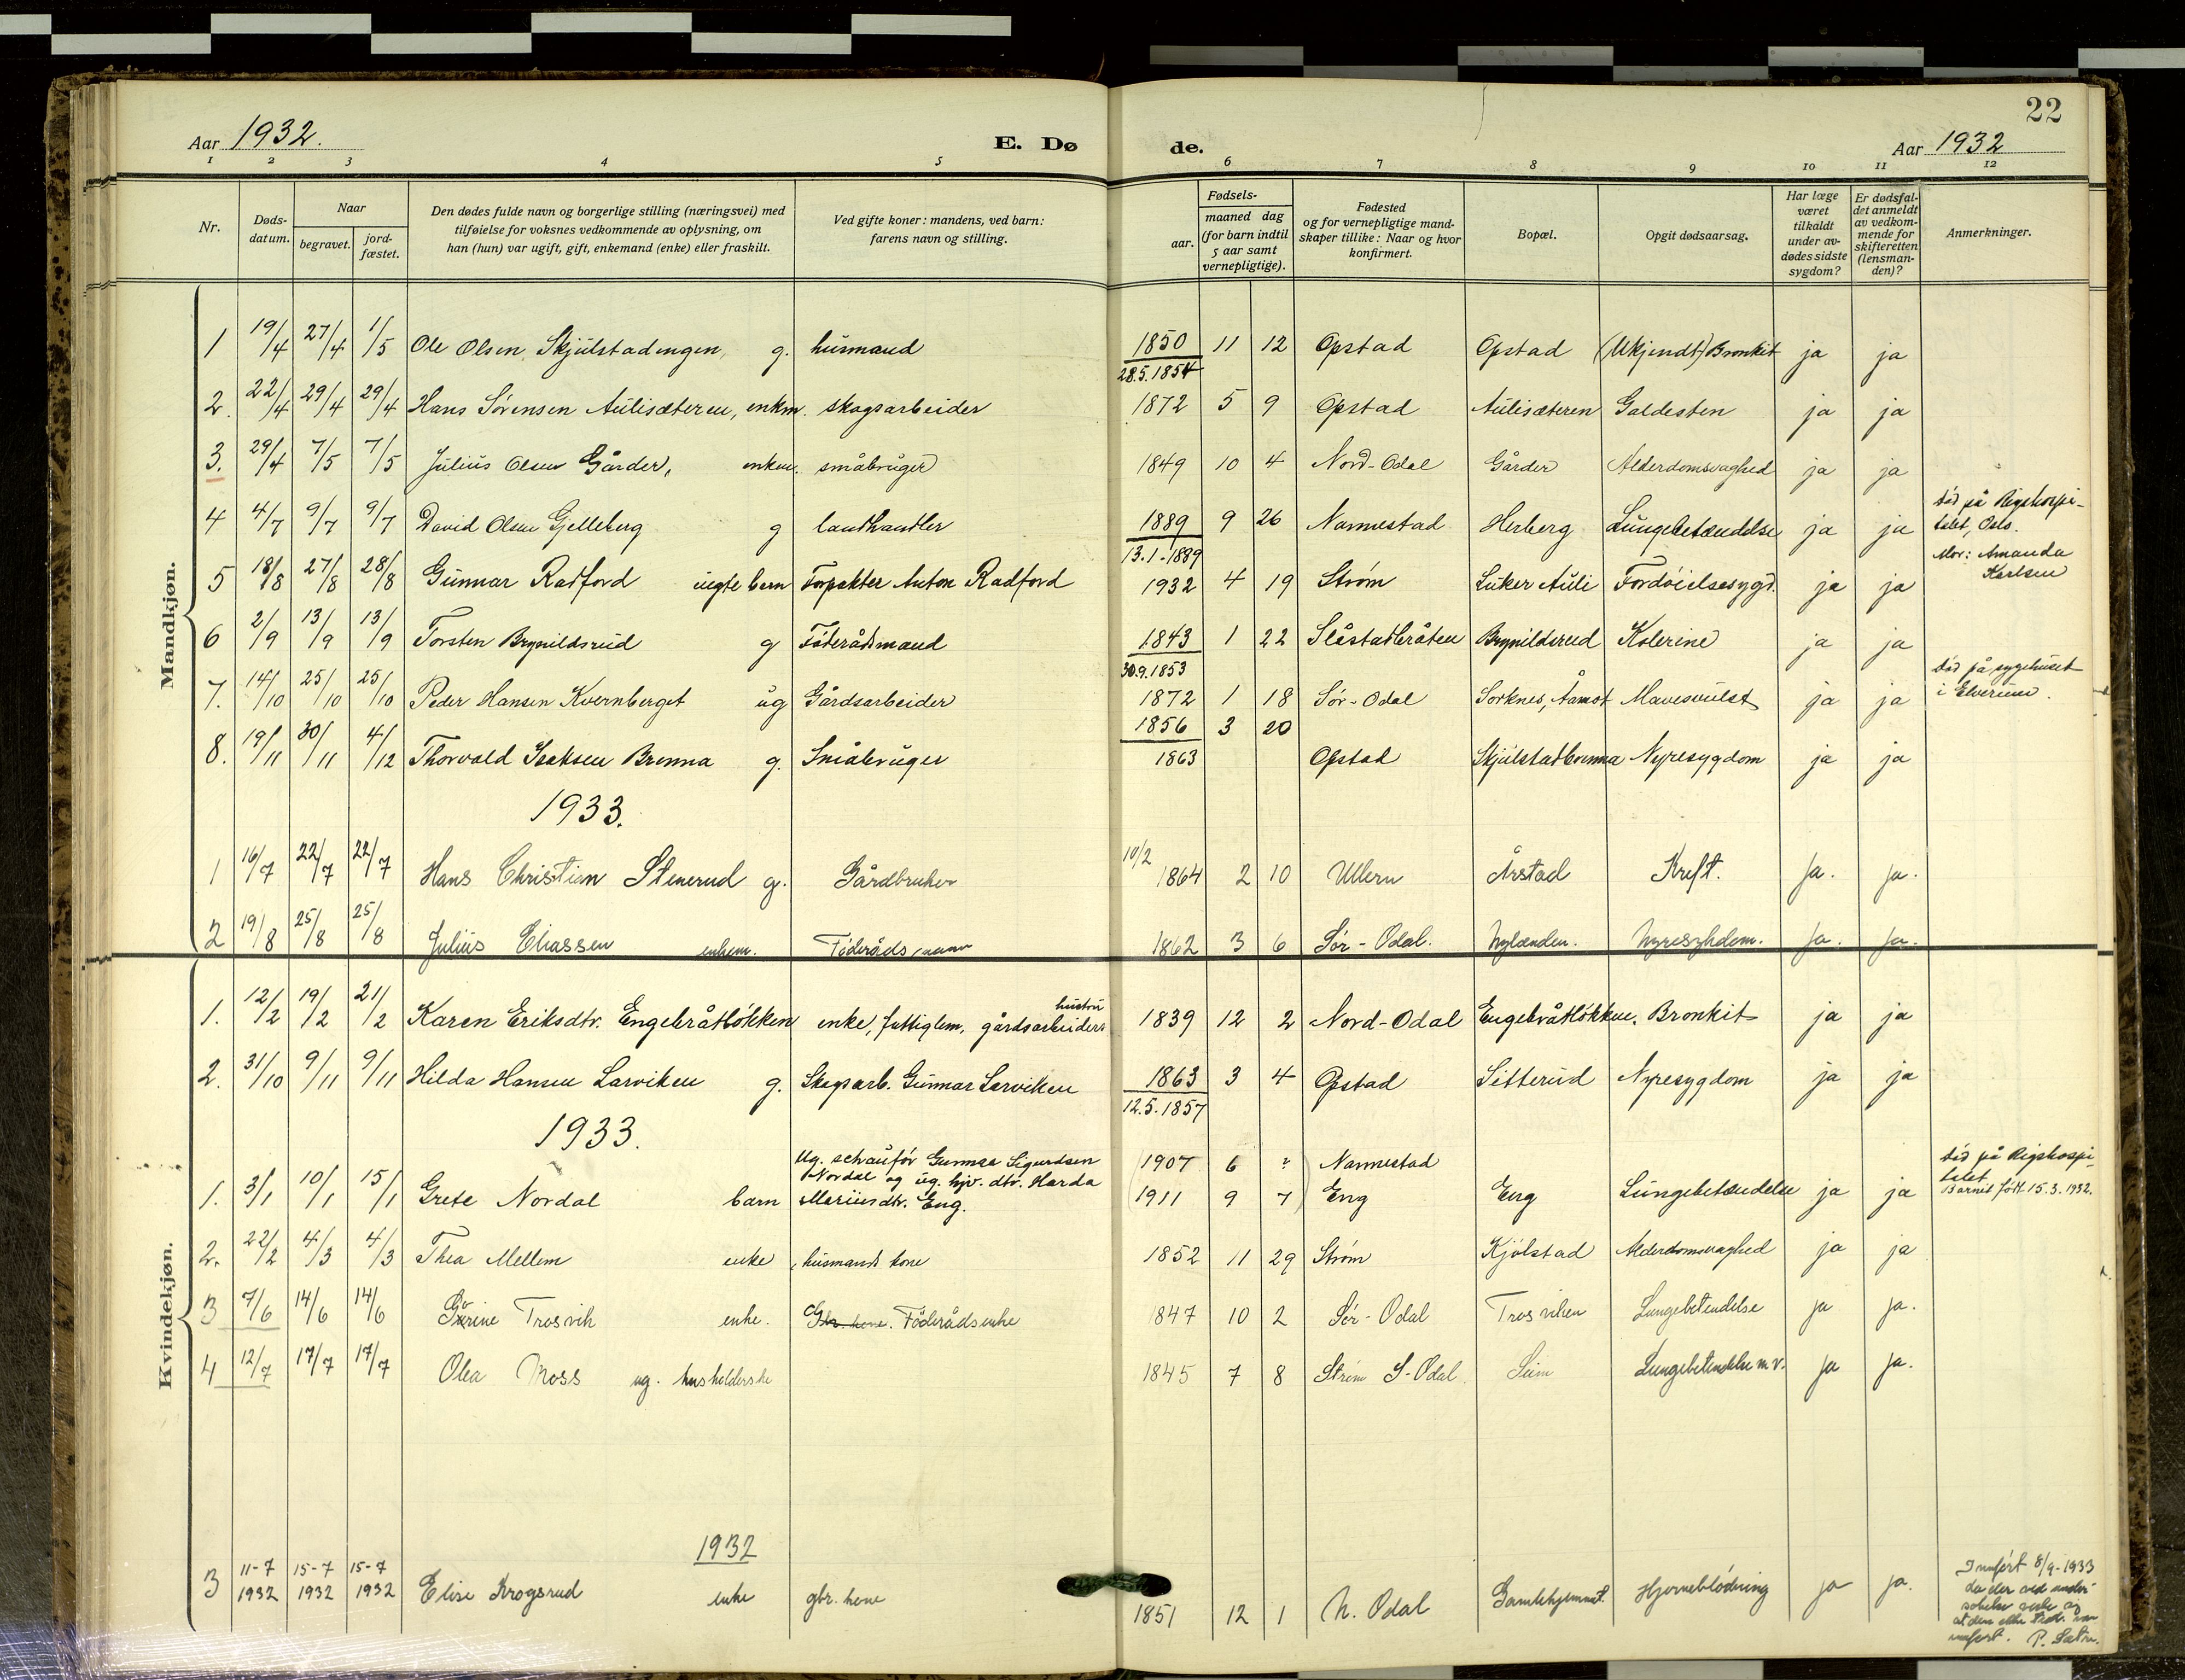 22
Aar 1932. E. Dø de. Aar 1932
1 2 3 4 5 6 7 8 9 10 11 12
Nr. Døds-datum. Naar begravet. jord-fæstet. Den dødes fulde navn og borgerlige stilling (næringsvei) med tilføielse for voksnes vedkommende av oplysning, om han (hun) var ugift, gift, enkemand (enke) eller fraskilt. Ved gifte koner: mandens, ved barn: farens navn og stilling. aar. Fødsels- maaned dag (for barn indtil 5 aar samt vernepligtige). Fødested og for vernepligtige mand-skaper tillike: Naar og hvor konfirmert. Bopæl. Opgit dødsaarsag. Har læge været tilkaldt under av-dødes sidste sygdom? Er dødsfal-det anmeldt av vedkom-mende for skifteretten (lensman-den)? Anmerkninger.
Mandkjøn.
1 19/4 27/4 1/5 Ole Olsen Skjulstadengen g. husmand 1850 11 12 Opstad Opstad (Ukjendt) Bronkit ja ja
28.5.1854
2. 22/4 29/4 29/4 Hans Sørensen Aulisæteren, enkm. skogsarbeider 1872 5 9 Opstad Aulisæteren Galdesten ja ja
3. 29/4 7/5 7/5 Julius Olsen Gårder, enkem. småbruger 1849 10 4 Nord-Odal Gårder Alderdomsvaghed ja ja
4 4/7 9/7 9/7 David Olsen Gjelleberg g landhandler 1889 9 26 Navnestad Herberg Lungebetændelse ja ja død på Rigshospi-talet, Oslo.
13.1-1889
5 18/8 27/8 28/8 Gunnar Radford uegte barn Forpakter Anton Radford 1932 4 19 Strøm Luker Auli Fordøielsesygd. ja ja Mor: Amanda Karlsen
6 2/9 13/9 13/9 Torsten Brynildsrud g Føderådsmand 1843 1 22 Slåstadbråten Brynildsrud Kolerine ja ja
30.9.1853
7. 14/10 25/10 25/10 Peder Hansen Kvernberget ug Gårdsarbeider 1872 1 18 Sør-Odal Sorknes, Åamot Mavesvulst ja ja død på sygehuset i Elverum.
1856 3 20
8. 19/11 30/11 4/12 Thorvald Isaksen Brenna g. Småbruger 1863 Opstad Skjulstadbrenna Nyresygdom ja ja
1933.
1 16/7 22/7 22/7 Hans Christian Stenerud g. Gårdbruker 10/2 1864 2 10 Ullern Årstad Kreft. Ja. ja.
2 19/8 25/8 25/8 Julius Eliassen enkem. Föderådsmann 1862 3 6 Sör-Odal. Nylænden. Nyresykdom. Ja. Ja.
Kvindekjøn.
1. 12/2 19/2 21/2 Karen Eriksdtr. Engebråtløkken enke, fattiglem, gårdsarbeiders hustru 1839 12 2 Nord-Odal Engebråtløkken. Bronkit ja ja
2. 31/10 9/11 9/11 Hilda Hansen Larviken g. Skogsarb. Gunnar Larviken 1863 3 4 Opstad Sitterud Nyresygdom ja ja
12.5.1857
1933.
Ug. schaufør Gunnar Sigurdsen 1907 6 ? Navnestad
1. 3/1 10/1 15/1 Grete Nordal barn Nordal og ug. hjv. dtr. Harda Mariusdtr. Eng. 1911 9 7 Eng Eng Lungebetændelse ja ja død på Rigshospi-talet Barnet født 15.3.1932.
2. 22/2 4/3 4/3 Thea Mellem enke, husmands kone 1852 11 29 Strøm Kjølstad Alderdomsvaghed ja ja
3 7/6 14/6 14/6 Gorine Trosvik enke. Gbr. kone. Föderådsenke 1847 10 2 Sör-Odal Trosviken Lungebetendelse ja ja.
4 12/7 17/7 17/7 Olea Moss ug. husholderske 1845 7 8 Ström S-Odal Seim Lungebetendelse m.v. ja ja.
1932
3 11-7 1932 15-7 1932 15-7 1932 Elise Krogsrud enke gbr. kone 1851 12 1 N. Odal Gamlehjemmet. Hjerneblödning ja ja. Innført 8/9-1933
da der ved under-
sökelse viste sig
at den ikke
innfört. P. Sætre.